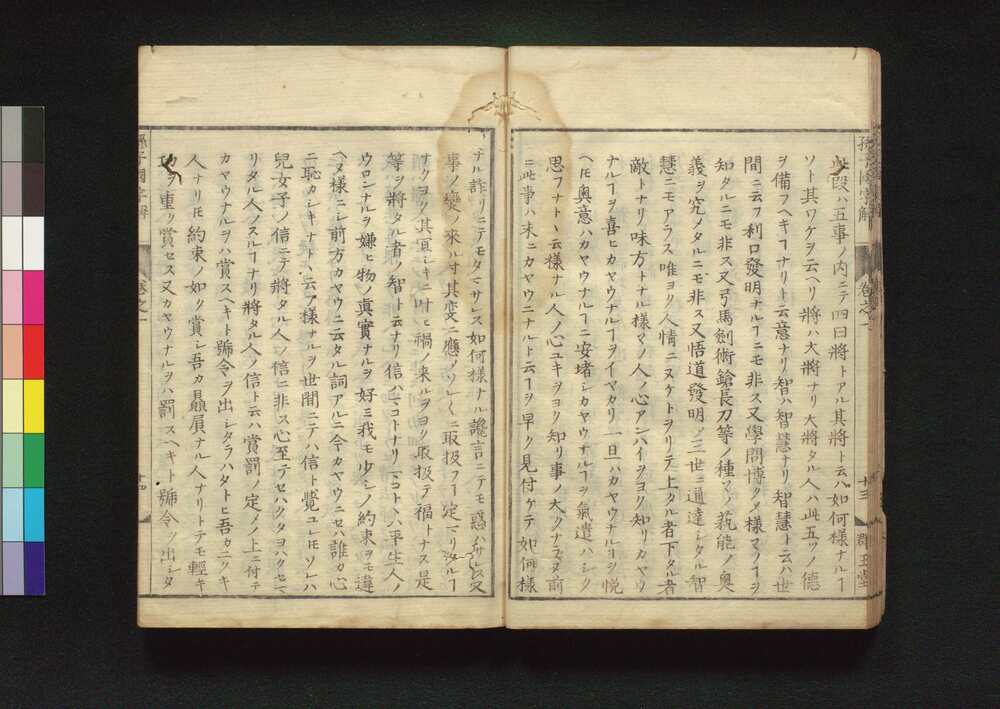 此段ハ五事ノ内ニテ四曰將トアル其將ト云ハ如何樣ナルヿ
ソト其ワケヲ云ヘリ將ハ大將ナリ大將タル人ハ此五ツノ德
ヲ備フヘキヿナリト云意ナリ智ハ智慧ナリ智慧ト云ハ世
間ニ云フ利口發明ナルヿニモ非ス又學問博ク メ樣マノヿヲ
知タルニモ非ス又弓馬劍術鎗長刀等ノ種マノ藝能ノ奧
義ヲ究メタルニモ非ス又悟道發明メ三世ニ通達シタル智
慧ニモアラス唯ヨク人情ニヌケトヲリテ上タル者下タル者
敵トナリ味方トナル樣マノ人ノ心アンハイヲヨク知リカヤウ
ナルヿヲ喜ヒカヤウナルヿヲイマカリ一旦ハカヤウナルヿヲ悅
ヘ𪜈奧意ハカヤウナルヿニ安堵シカヤウナルヿヲ氣遣ハシク
思フナト丶云樣ナル人ノ心ユキヲヨク知リ事ノ大クナラヌ前
ニ此事ハ末ニカヤウニナルト云ヿヲ早ク見付ケテ如何樣
ナル詐リニテモタマサレス如何樣ナル讒言ニテモ惑ハサレス又
事ノ變ノ來ル寸其變ニ應メソレ〱ニ取扱フヿ定マリタルヿ
ナクヨク其宜シキニ叶ヒ禍ノ來ルヲヨク取扱テ福トナス是
等ヲ將タル者ノ智ト云ナリ信ハマコトナリマコト丶ハ平生人ノ
ウロンナルヲ嫌ヒ物ノ眞實ナルヲ好ミ我モ少シノ約束ヲモ違
ヘヌ樣ニシ前方カヤウニ云タル詞アルニ今カヤウニセハ誰カ心
ニ恥カシキナト丶云樣ナルヲ世間ニテハ信ト覺ユレ𪜈ソレハ
兒女子ノ信ニテ將タル人ノ信ニ非ス心至テセハクタヨハクセマ
リタル人ノスルヿナリ將タル人ノ信ト云ハ賞罰ノ定メノ上ニ付テ
カヤウナルヲハ賞スヘキト號令ヲ出シタラハタトヒ吾カニクキ
人ナリ𪜈約束ノ如ク賞シ吾カ贔屓ナル人ナリトテモ輕キ
功ヲ重ク賞セス又カヤウナルヲハ罰スヘキト號令ヲ出シタ
孫子國字解
卷之一
十三
群玉堂
孫子國字解
卷之一
十四